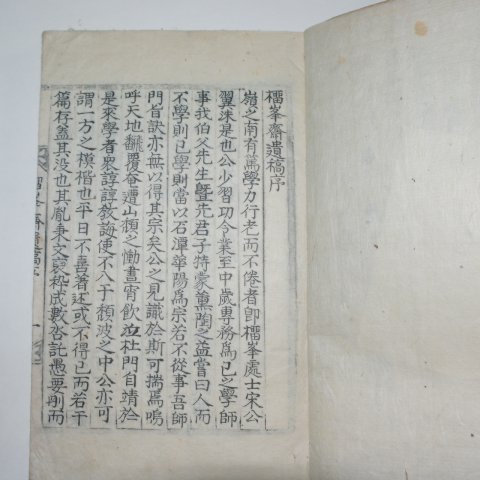 橊峯齋遺稿序
嶺之南有篤學力行老而不倦者卽橊峯處士宋公
翼洙是也公少習功令業至中歲專務爲己之學師
事我伯父先生曁先君子特蒙薰陶之益嘗曰人而
不學則已學則當以石潭華陽爲宗若不從事吾師
門旨訣亦無以得其宗矣公之見識於斯可揣焉嗚
呼天地飜覆奄遭山頹之慟晝宵飮泣杜門自靖於
是來學者衆諄諄敎誨使不入于頹波之中公亦可
謂一方之模楷也平日不善著述或不得已而若干
篇存盖其没也其胤秉文裒稡成數沓託愚要刪而